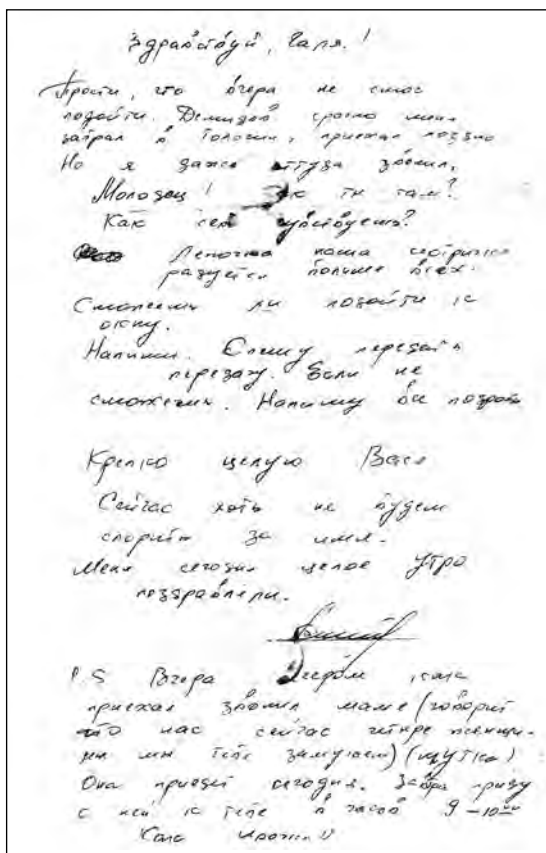 Здравствуй, Галя!
Прости, что вчера не смог
подойти. Демидов срочно меня
забрал в Толочин, приехал поздно
Но я даже оттуда звонил,
Молодец! Как ты там?
Как себя чувствуешь?
Леночка наша сестричке
радуется больше всех.
Сможешь ли подойти к
окну.
Напиши. Спешу передать
передачу. Если не
сможешь. Напишу все подроб
Крепко целую Вася
Сейчас хоть не будем
спорить за имя.
Меня сегодня целое утро
поздравляли.
P.S Вчера вечером как
приехал звонил маме (говорит
что нас сейчас четыре женщи-
ны мы тебе замучаем) (шутка)
Она приедет сегодня. Завтра приду
с ней к тебе в часов 9-10⁰⁰
Как